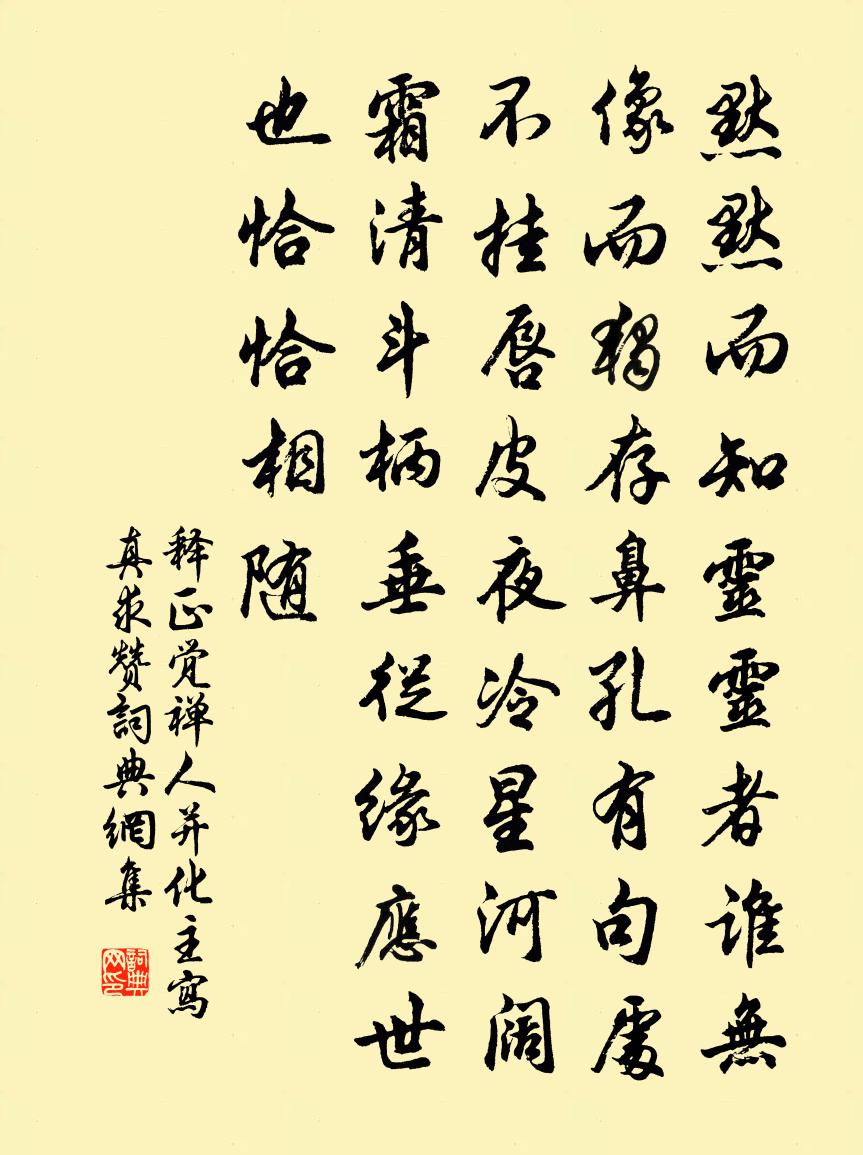 默默而知靈靈者誰無
像而獨存鼻孔有句處
不挂唇皮夜冷星河阔
霜清斗柄垂從緣應世
也恰恰相随
释正觉禅人并化主寫
真求赞詞典網集
詞典网印